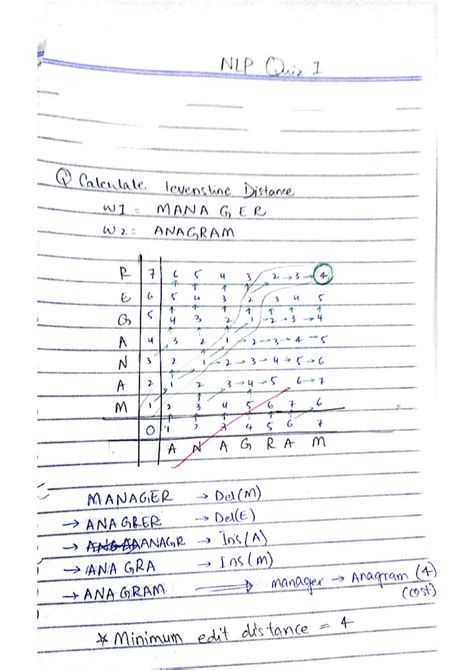 NLP Quiz 1
Q Calculate levenstine Distance
W1 = MANAGER
W2 = ANAGRAM
R 7 6 5 4 3 2 → 3 → 4
E 6 5 4 3 2 3 4 5
G 5 4 3 2 1 → 2 → 3 → 4
A 4 3 2 1 → 2 → 3 → 4 → 5
N 3 2 1 → 2 → 3 → 4 → 5 → 6
A 2 1 2 3 → 4 → 5 6 → 7
M 1 2 3 4 5 6 7 6
0 1 2 3 4 5 6 7
A N A G R A M
MANAGER → Del(M)
→ ANAGRER → Del(E)
→ ANAGR → Ins(A)
→ ANAGRA → Ins(m)
→ ANAGRAM → manager → Anagram (4)
(cost)
* Minimum edit distance = 4